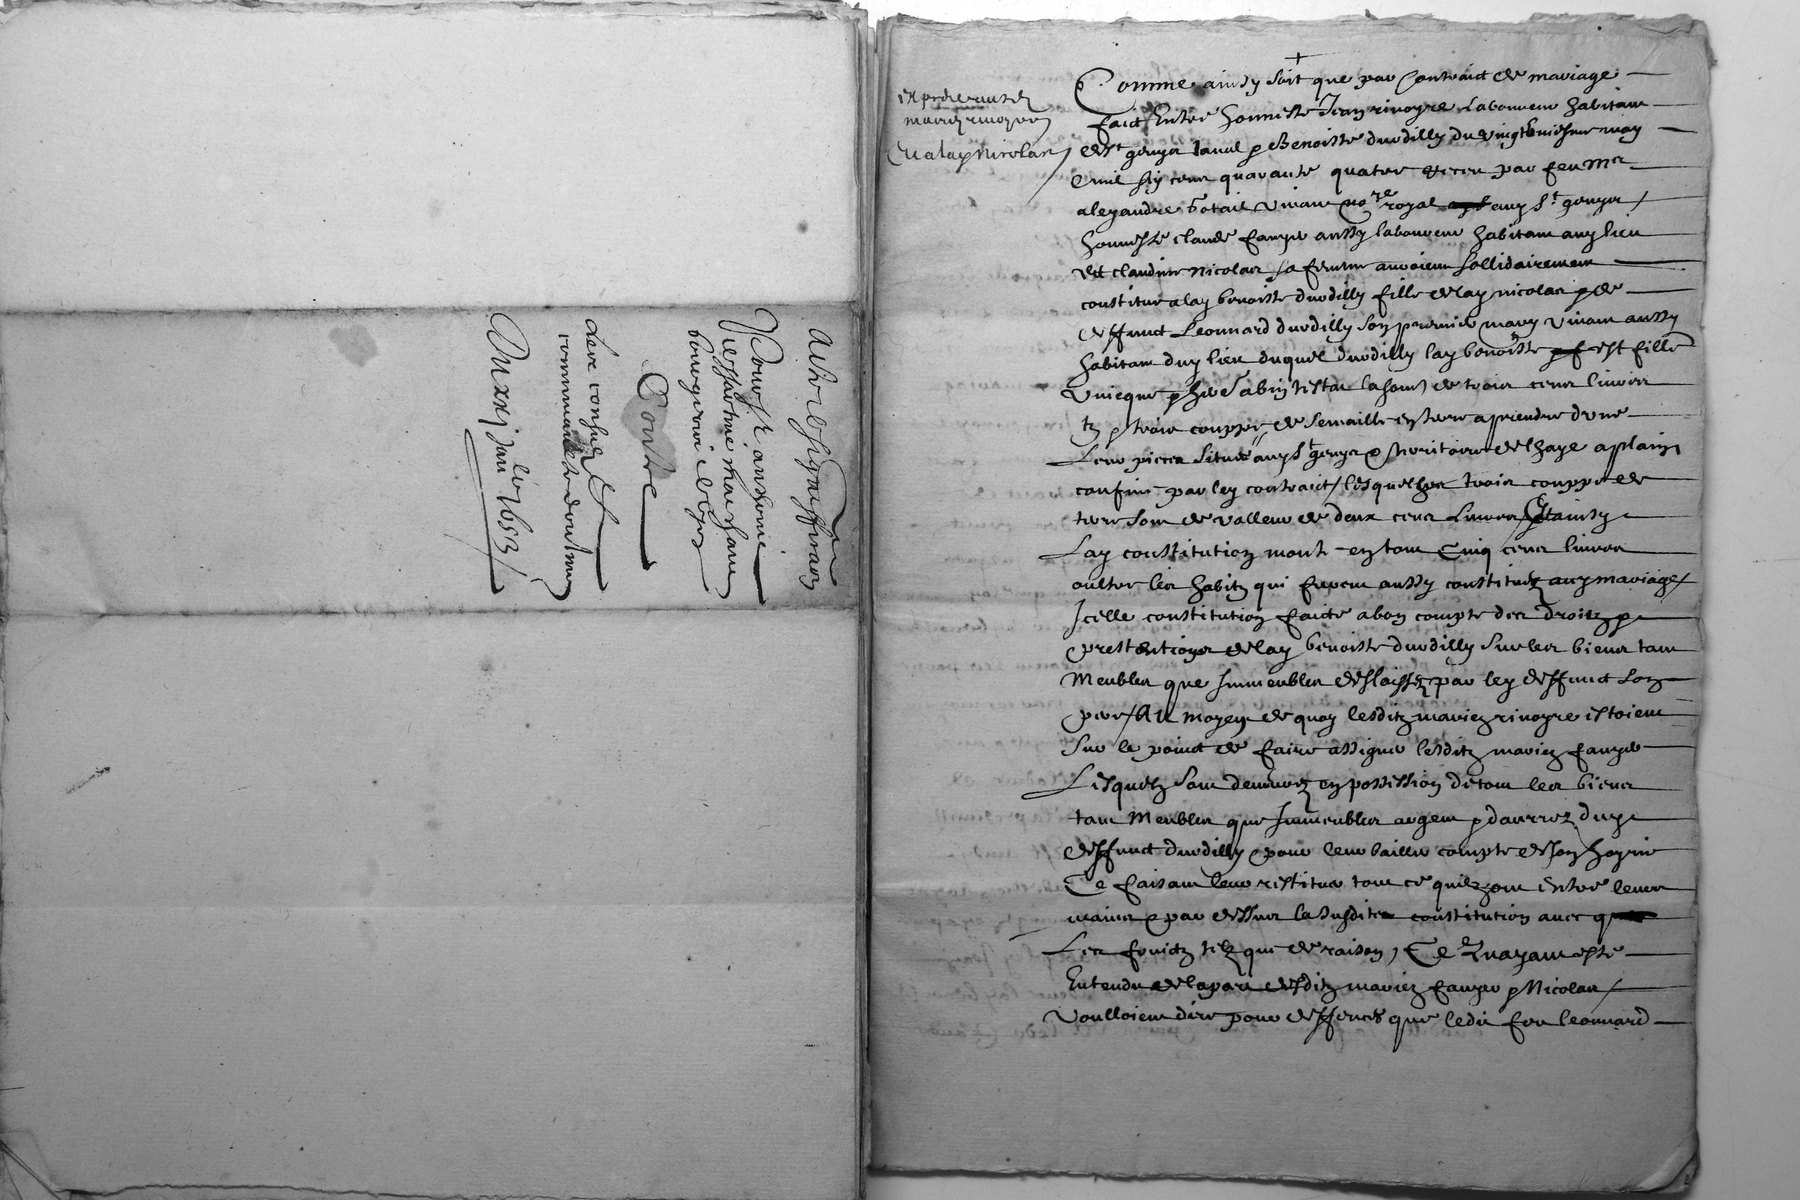 Acte de signiffication
Pour sr anthoine
Verssarme marchant
bourgeois
Contre
Les consulz et
communaulté
Du xxj janvier 1653
expedié ausdz
mariez rivoyre
Et a lad nicolas
Comme ainsy soit que par Contraict de mariage
faict Entre honneste Jean rivoyre Laboureur habitant
de st genys laval & Benoiste durdilly du vingt huictiesme may
mil six cens quarante quatre receu par feu Mre
alexandre vivant nore royal aud st genys
honneste claude fayre aussy laboureur habitant aud lieu
Et claudine Nicolas sa femme auroient sollidairement
constitué a lad benoiste durdilly fille de lad nicolas & de
deffunct Leonnard durdilly son premier mary vivant aussy
habitant dud lieu duquel durdilly lad benoiste est fille
Unicque & here abintestat la somme de trois cens livres
tz & trois couppées de semaille en terre a prendre d'une
Leur piece située aud st genys & territoire de lhaye a plain
confiné par led contraict / lesquelles trois couppées de
terre sont de valleur de deux cens Livres Et ainsy
Lad constitution monte en tout Cinq cens livres
oultre les habitz qui furent aussy constituez aud mariage /
Icelle constitution faicte a bon compte des droitz &
prestentions de lad benoiste durdilly sur les biens tant
Meubles que Immeubles deslaissez par led deffunct son
pere / Au moyen de quoy lesditz mariez rivoyre estoient
Sur le poinct de faire assigner lesditz mariez fayre
Lesquelz sont demeurez en possession de tous les biens
tant Meubles que Immeubles argent & danrees dud
deffunct durdilly pour leur bailler compte de son hoyrie
Ce faisant leur restituer tout ce quilz ont Entre leurs
mains & par dessus la susdite constitution avec
Les fruictz telz que de raison, Ce Quayant esté
Entendu de la part desditz mariez fayre & Nicolas /
Voulloient dire pour deffences que ledit feu leonnard